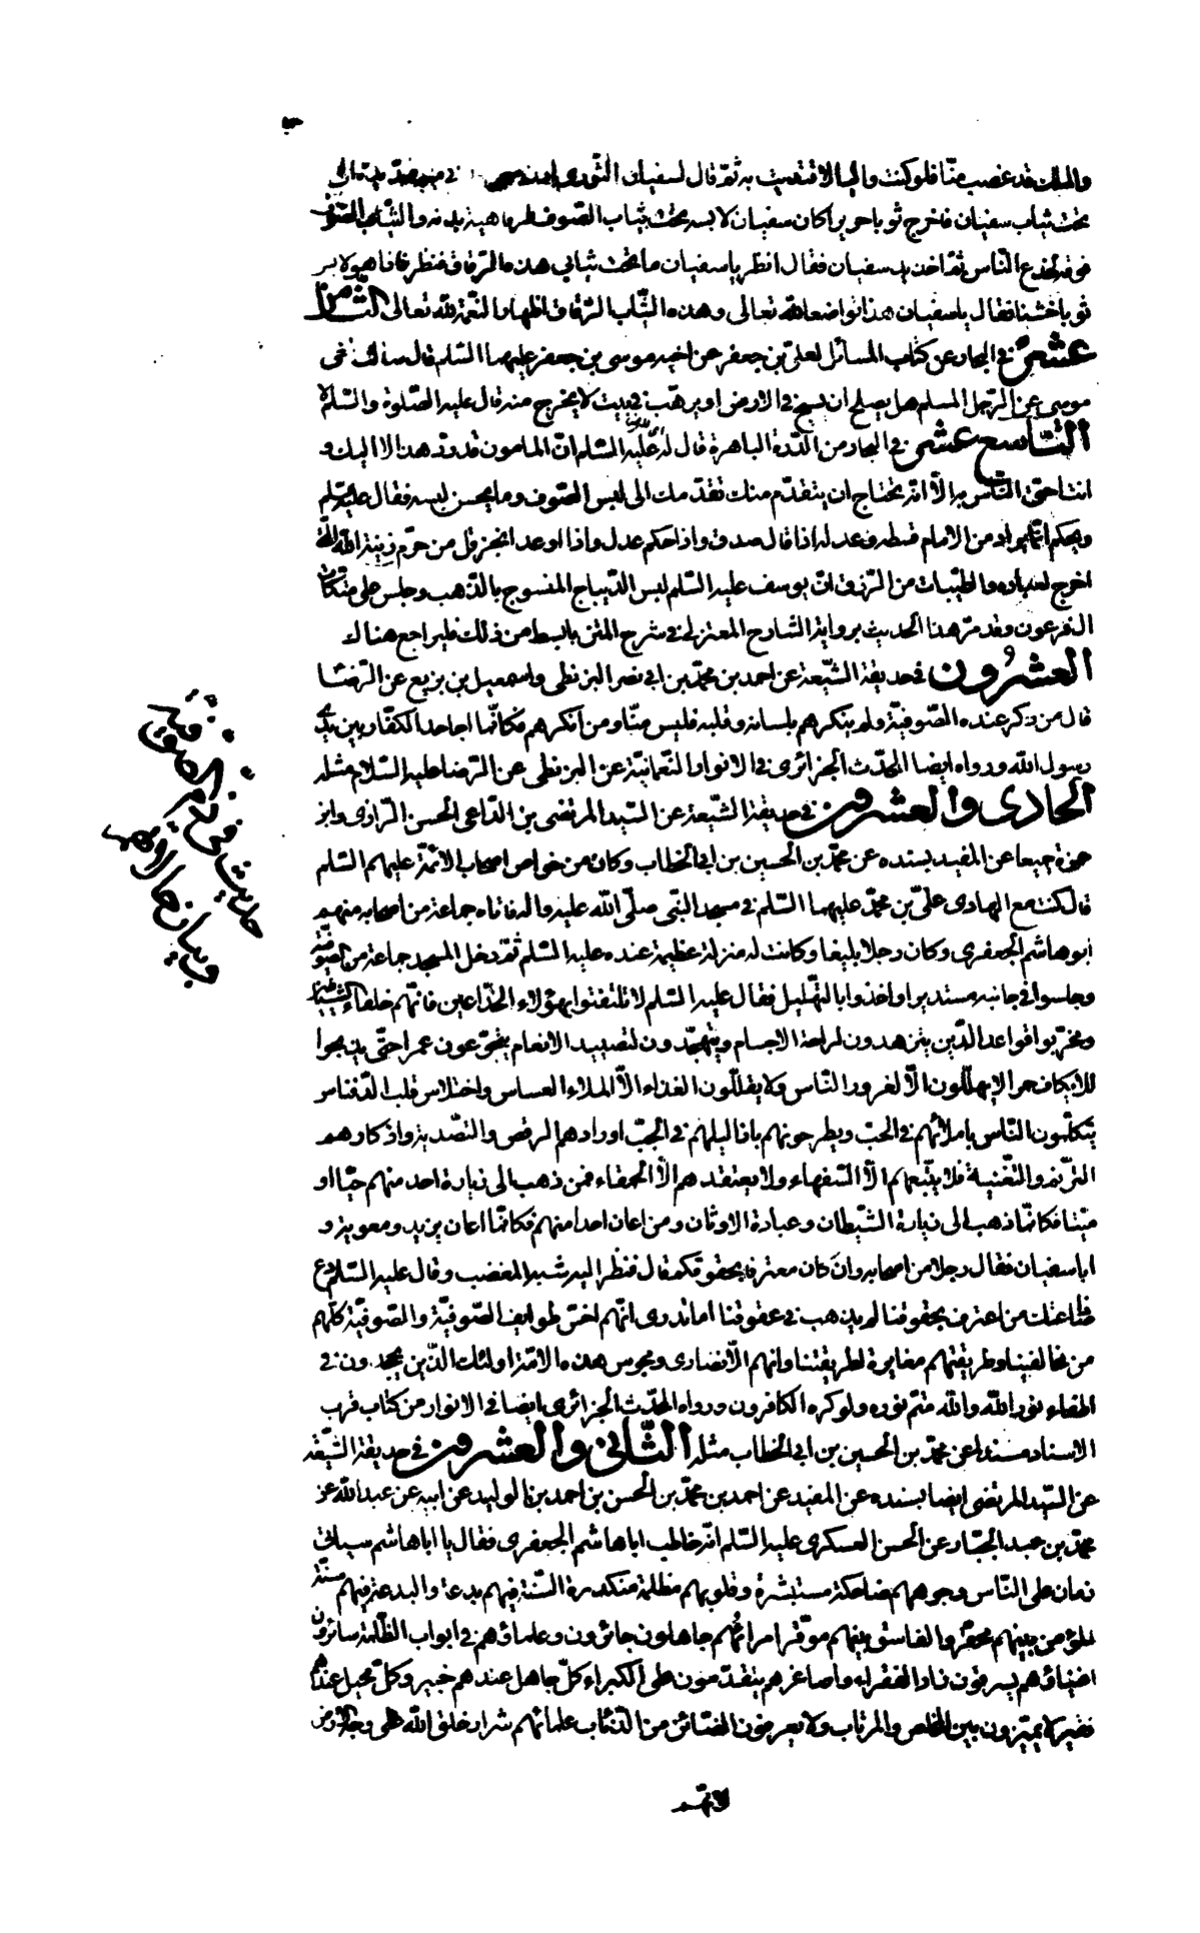 والملك قد غصب منّا فلو كنت واليا لاقتديت به ثمّ قال لسفيان الثوري
تحت ثياب سفيان فاخرج ثوبا حريرا كان سفيان لابسه تحت ثياب الصّوف طرفاهية بدنه والثياب الصوف
فوقه لخدع النّاس ثمّ اخذ يد سفيان فقال انظر يا سفيان ما تحت ثيابي هذه الرّقاق فنظر فاذا هو لابس
ثوبا خشنا فقال يا سفيان هذا تواضعا لله تعالى وهذه الثّياب الرّقاق اظهارا لنّعمة لله تعالى الثامن
عشر في البحار عن كتاب المسائل لعلي بن جعفر عن اخيه موسى بن جعفر عليهما السّلم قال سالت اخي
موسى عن الرّجل المسلم هل يصلح ان يسيح في الارض او يرهّب في بيت لا يخرج منه قال عليه الصّلوة والسّلم لا
التّاسع عشر في البحار من الدّرة الباهرة قال له عليه السّلم انّ المامون قد ردّ هذا الامر اليك و
انت احقّ النّاس به الّا انّه تحتاج ان يتقدّم منك تقدّمك الى لبس الصّوف وما يحسن لبسه فقال عليه السّلم
ويحكم انّما يراد من الامام قسطه وعدله اذا قال صدق واذا حكم عدل واذا وعد انجز قل من حرّم زينة الله الّتي
اخرج لعباده والطّيّبات من الرّزق انّ يوسف عليه السّلم لبس الدّيباج المنسوج بالذّهب وجلس على متّكات
ال فرعون وقد مرّ هذا الحديث برواية الشّارح المعتزلي في شرح المتن بابسط من ذلك فليراجع هناك
العشرون في حديقة الشّيعة عن احمد بن محمّد بن ابي نصر البزنطي واسمعيل بن بزيع عن الرّضا
قال من ذكر عنده الصّوفيّة ولم ينكرهم بلسانه وقلبه فليس منّا ومن انكرهم فكانّما جاهد الكفّار بين يدي
رسول الله ورواه ايضا المحدّث الجزائري في الانوار النّعمانيّة عن البزنطي عن الرّضا عليه السّلام مثله
الحادي والعشرون في حديقة الشّيعة عن السّيد المرتضى بن الدّاعي الحسني الرّازي وابن
حمزة جميعا عن المفيد بسنده عن محمّد بن الحسين بن ابي الخطاب وكان من خواص اصحاب الائمّة عليهم السّلم
قال كنت مع الهادي عليّ بن محمّد عليهما السّلم في مسجد النّبي صلّى الله عليه واله فاتاه جماعة من اصحابه منهم
ابو هاشم الجعفري وكان رجلا بليغا وكانت له منزلة عظيمة عنده عليه السّلم ثمّ دخل المسجد جماعة من الصوفيّة
وجلسوا في جانبه مستديرا واخذوا بالتهليل فقال عليه السّلم لا تلتفتوا بهؤلاء الخدّاعين فانّهم خلفاء الشياطين
ومخرّبوا قواعد الدّين يتزهدون لراحة الاجسام ويتهجّدون لتصييد الانعام يتجوّعون عمرا حتّى يديجوا
للايكاف حمرا لا يهلّلون الّا لغرور النّاس ولا يقلّلون الغذاء الّا لملاء العساس واختلاس قلب الدّفناس
يتكلّمون النّاس باملائهم في الحبّ ويطرحونهم باذاليلهم في الجبّ اورادهم الرقص والتصدية واذكارهم
التّرنّم والتّغنية فلا يتّبعهم الّا السّفهاء ولا يعتقدهم الّا الحمقاء فمن ذهب الى زيارة احد منهم حيّا او
ميّتا فكانّما ذهب الى زيارة الشّيطان وعبادة الاوثان ومن اعان احدا منهم فكانّما اعان يزيد ومعوية و
ابا سفيان فقال رجل من اصحابه وان كان معترفا بحقوقكم قال فنظر اليه شبه المغضب وقال عليه السّلم دع
ذا عنك من اعترف بحقوقنا لم يذهب في عقوقنا اما تدرى انّهم اخسّ طوايف الصّوفيّة والصّوفيّة كلّهم
من مخالفينا وطريقتهم مغايرة لطريقتنا وانهم الّا نصارى ومجوس هذه الامّة اولئك الّذين يجهدون في
اطفاء نور الله والله متمّ نوره ولو كره الكافرون ورواه المحدّث الجزائري ايضا في الانوار من كتاب قرب
الاسناد مسندا عن محمّد بن الحسين بن ابي الخطاب مثله الثّاني والعشرون في حديقة الشّيعة
عن السّيد المرتضى ايضا بسنده عن المفيد عن احمد بن محمّد بن الحسن بن احمد بن الوليد عن ابيه عن عبد الله عن
محمّد بن عبد الجبّار عن الحسن العسكري عليه السّلم انّه خاطب ابا هاشم الجعفري فقال يا ابا هاشم سياتي
زمان على النّاس وجوههم ضاحكة مستبشرة وقلوبهم مظلمة منكدرة السّنّة فيهم بدعة والبدعة فيهم سنّة
المؤمن بينهم محقّر والفاسق بينهم موقّر امرائهم جاهلون جائرون وعلماؤهم في ابواب الظّلمة سائرون
اغنياؤهم يسرقون زاد الفقراء واصاغرهم يتقدّمون على الكبراء كلّ جاهل عندهم خبير وكلّ محيل عندهم
فقير لا يميّزون بين المخلص والمرتاب ولا يعرفون الضّائن من الذئاب علمائهم شرار خلق الله على وجه الارض
لانّهم
حديث في ذمّ الصوفية
وبيان حالاتهم